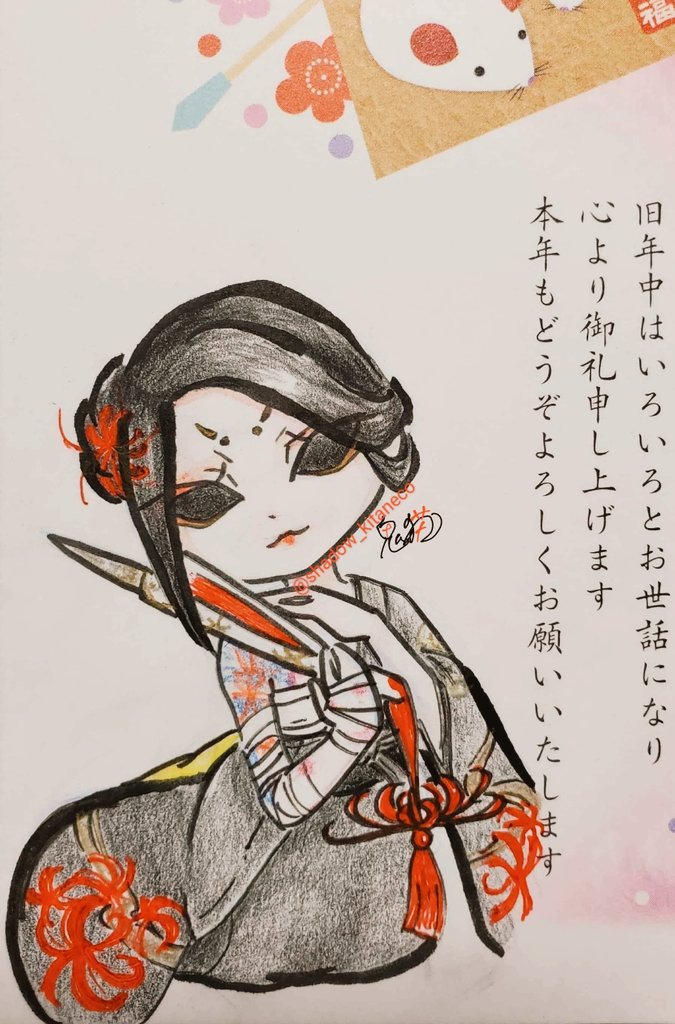 福
旧年中はいろいろとお世話になり
心より御礼申し上げます
本年もどうぞよろしくお願いいたします
@shadow_kitaneco